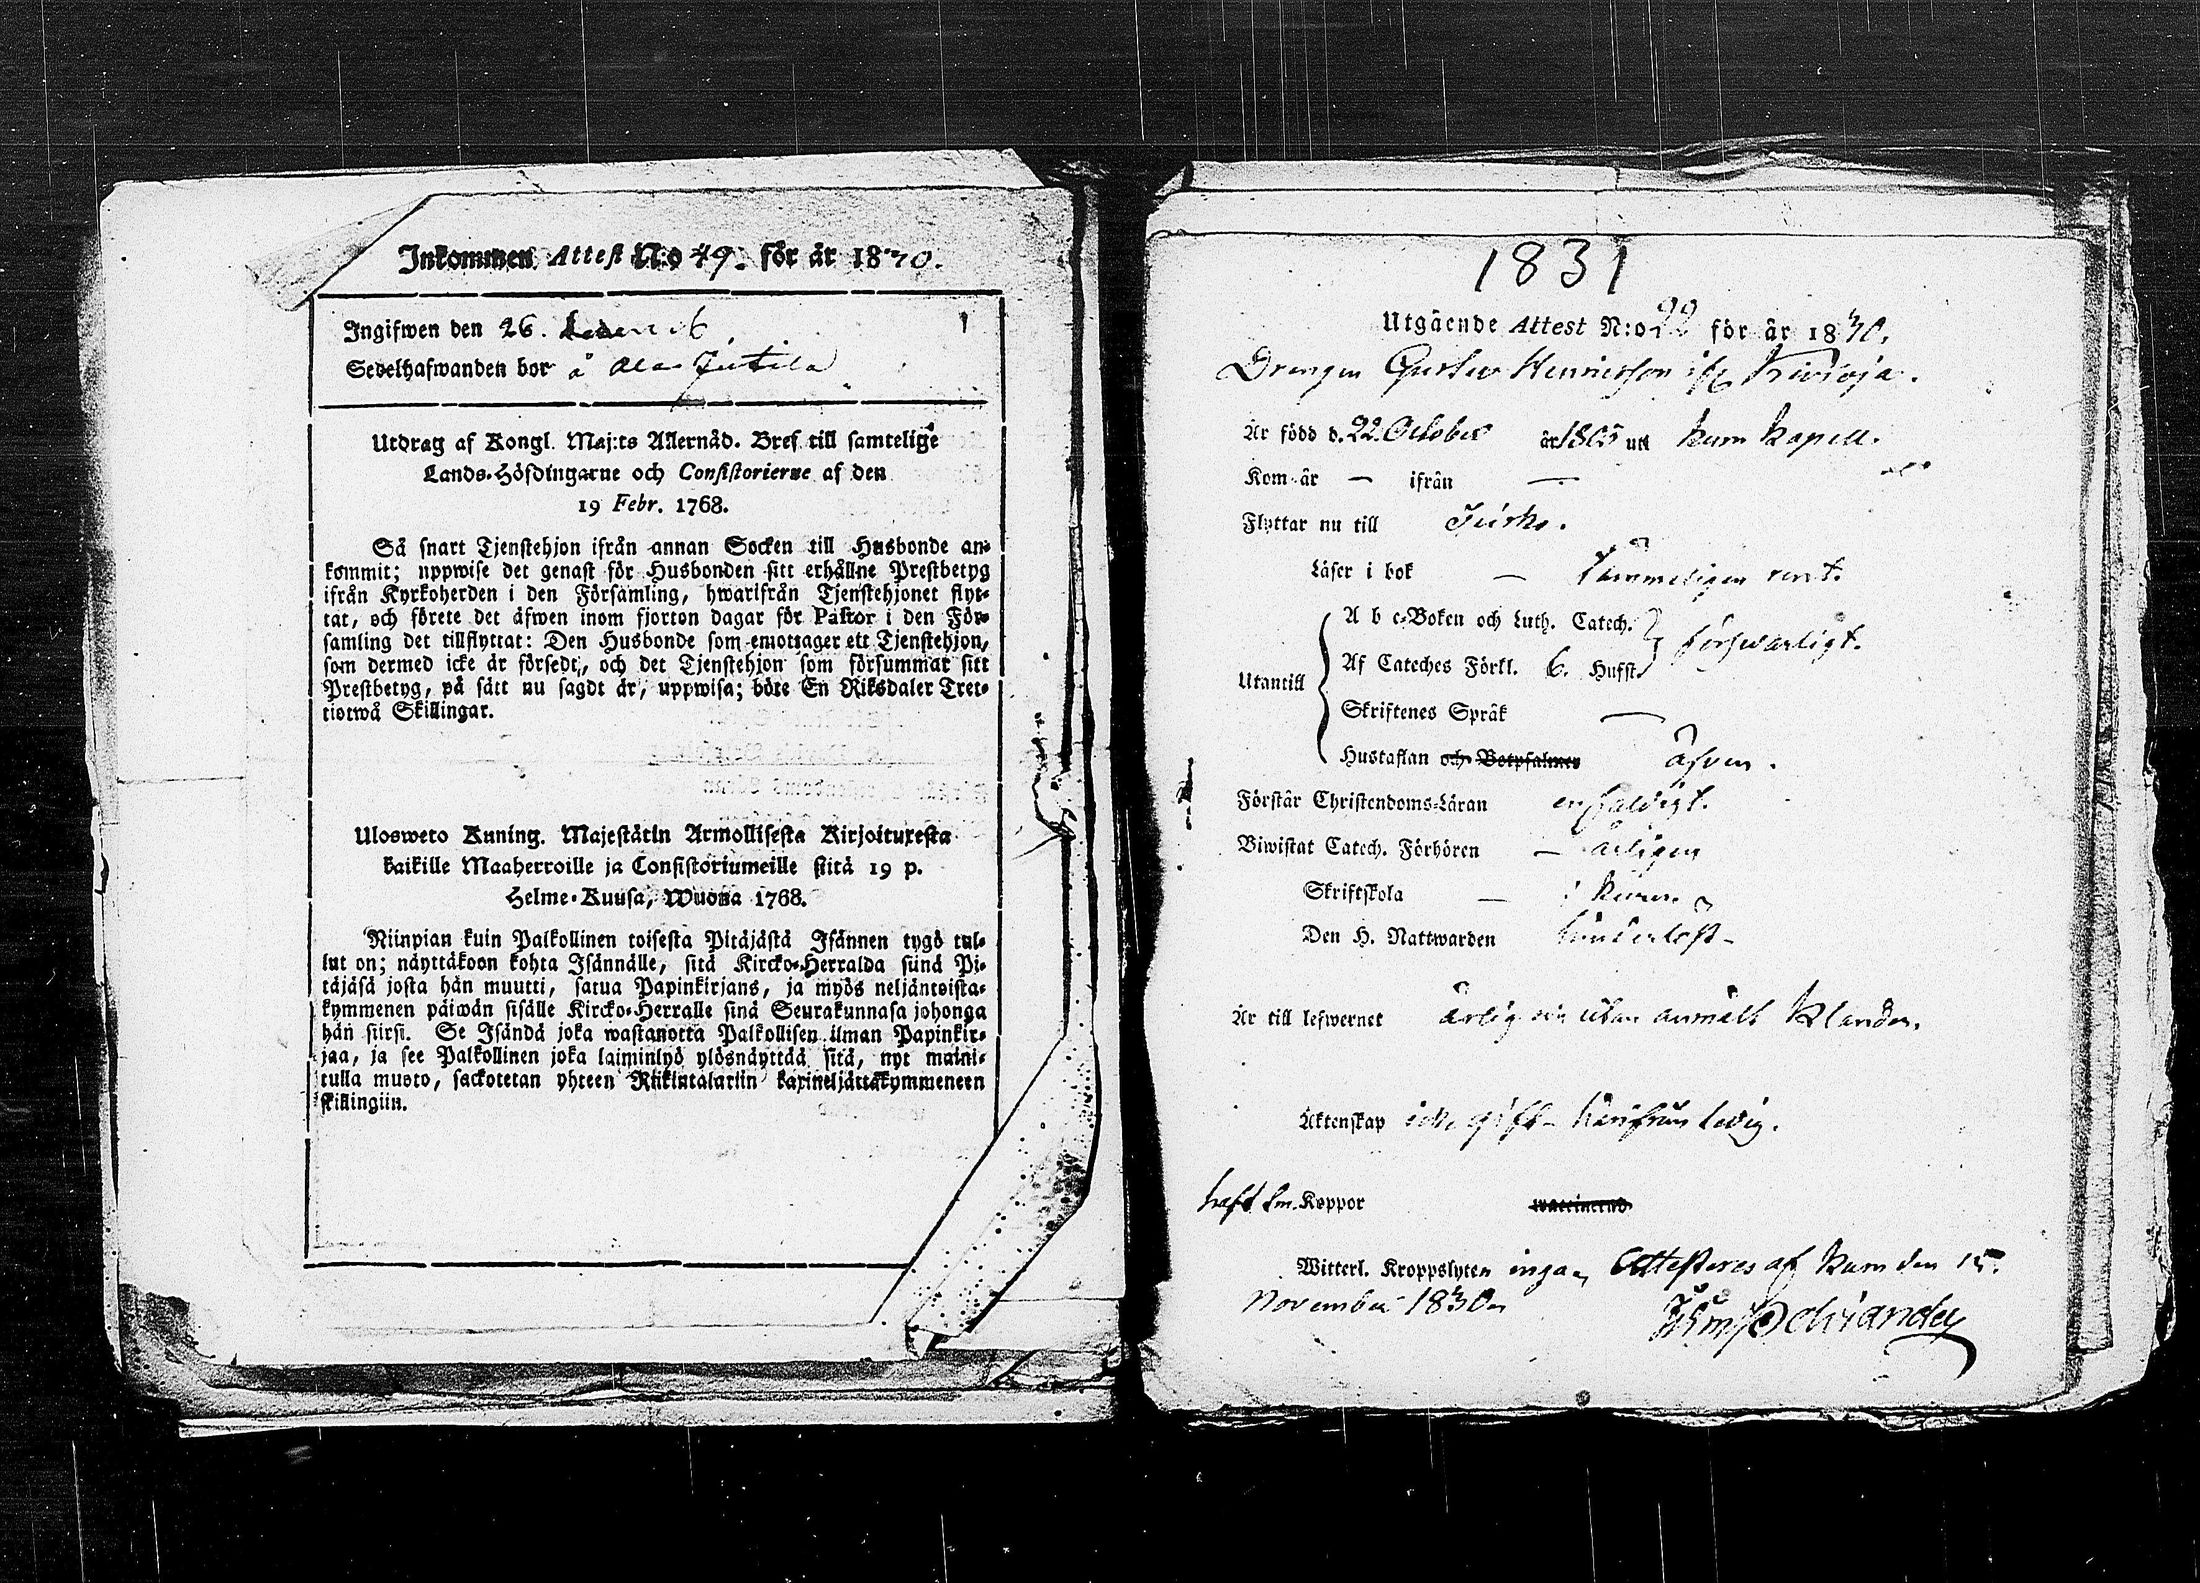 Inkommen Attest N:o 49. för år 1830.
Ingifwen den 26.
Sedelhafwanden bor å Ala Jutila
Utdrag af Kongl. Maj:ts Allernåd. Bref till samtelige
Lands-Höfdingarne och Consistorierne af den
19 Febr. 1768.
Så snart Tjenstehjon ifrån annan Socken till Husbonde an-
kommit; uppwise det genast för Husbonden sitt erhållne Prestbetyg
ifrån Kyrkoherden i den Församling, hwarifrån Tjenstehjonet flyt-
tat, och förete det äfwen inom fjorton dagar för Pastor i den För-
samling det tillflyttat: Den Husbonde som emottager ett Tjenstehjon,
som dermed icke är försedt, och det Tjenstehjon som försummar sitt
Prestbetyg, på sätt nu sagdt är, uppwisa; böte En Riksdaler Tret-
tiotwå Skillingar.
Ulosweto Kuning. Majestätin Armollisesta Kirjoituxesta
kaikille Maaherroille ja Consistoriumeille siitä 19 p.
Helme-Kuusa, Wuonna 1768.
Niinpian kuin Palkollinen toisesta Pitäjästä Isännen tygö tul-
lut on; näyttäkoon kohta Isännälle, sitä Kircko-Herralda siinä Pi-
täjäsä josta hän muutti, saatua Papinkirjans, ja myös neljäntoista-
kymmenen päiwän sisälle Kircko-Herralle siinä Seurakunnasa johonga
hän siirsi. Se Isändä joka wastanotta Palkollisen ilman Papinkir-
jaa, ja see Palkollinen joka laiminlyö ylösnäyttää sitä, nyt maini-
tulla muoto, sackotetan yhteen Riikintalariin kaxineljättäkymmeneen
skillingiin.
1831
Utgående Attest N:o 22 för år 1830.
Drengen Gustav Henricsson ifr Kivioja.
Är född d. 22. October år 1805 uti Kum Kapell.
Kom år — ifrån —
Flyttar nu till
Läser i bok — tämmeligen rent.
A b c-Boken och Luth. Catech.
Af Cateches Förkl. 6. Hufst. försvarligt.
Utantill
Skriftenes Språk —
Hustaflan och Botpsalmer äfven.
Förstår Christendoms-Läran enfaldigt.
Biwistat Catech. Förhören — årligen
Skriftskola — i
Den H. Nattwarden
Är till lefwernet ärlig och utan anmält Klander.
Äktenskap icke gift ledig.
haft Sm. Koppor waccinerad
Witterl. Kroppslyten inga, Attesteras af Kum den 15.
November 1830.